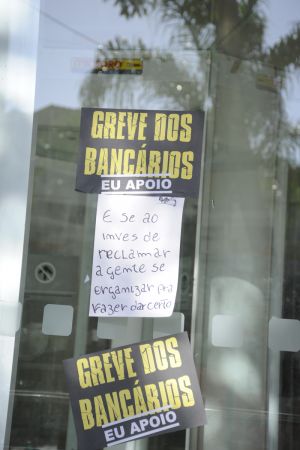 GREVE DOS
BANCÁRIOS
EU APOIO
E se ao
invés de
reclamar
a gente se
organizar pra
fazer dar certo
GREVE DOS
BANCÁRIOS
EU APOIO